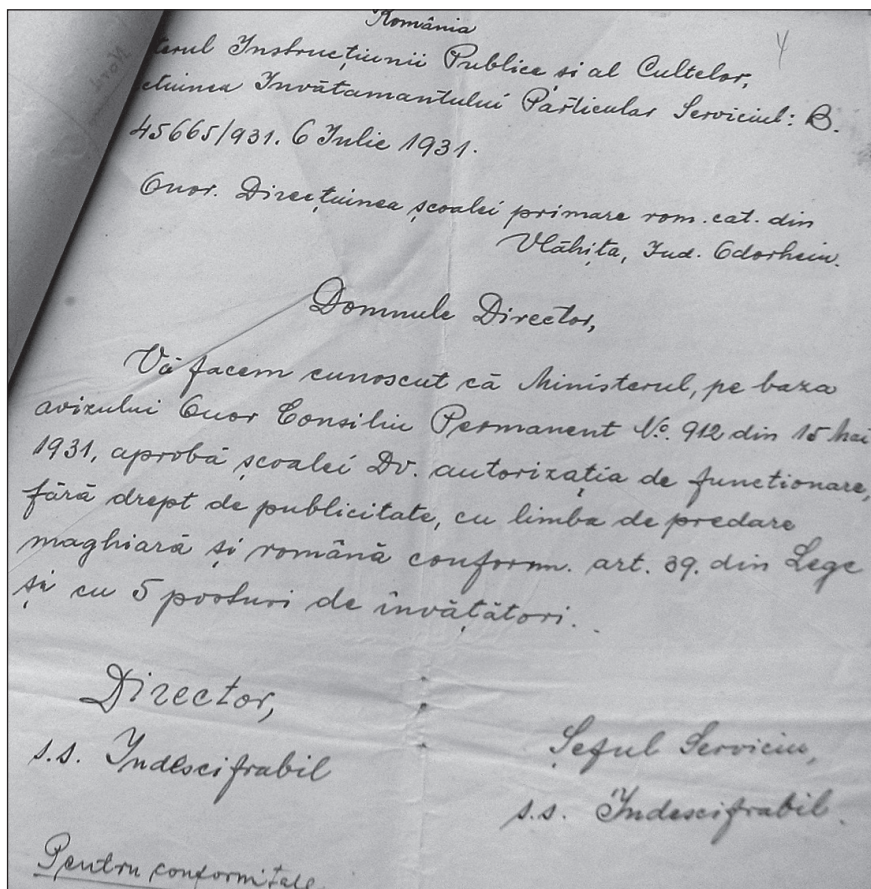 România
terul Instrucțiunii Publice și al Cultelor,
cțiunea Invătamantului Particular Serviciul: B.
45665/931. 6 Iulie 1931.
Onor. Direcțiunea școalei primare rom. cat. din
Vlăhița, Jud. Odorheiu.
Domnule Director,
Vă facem cunoscut că Ministerul, pe baza
avizului Onor Consiliu Permanent No. 912 din 15 Mai
1931, aprobă școalei Dv. autorizația de functionare,
fără drept de publicitate, cu limba de predare
maghiară și română conform. art. 39. din Lege
și cu 5 posturi de învățători.
Director,
s.s. Indescifrabil
Șeful Serviciu,
s.s. Indescifrabil.
Pentru conformitate